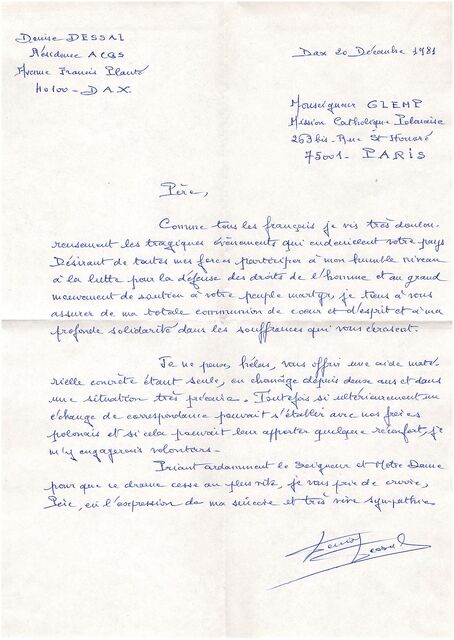 Denise DESSAI
Résidence ACGS
Avenue Francis Planté
40100 - DAX.
Dax 20 Décembre 1981
Monseigneur GLEMP
Mission Catholique Polonaise
263 bis - Rue St Honoré
75001 - PARIS
Père,
Comme tous les français je vis très doulou-
reusement les tragiques évènements qui endeuillent votre pays
Désirant de toutes mes forces participer à mon humble niveau
à la lutte pour la défense des droits de l'homme et au grand
mouvement de soutien à votre peuple martyr, je tiens à vous
assurer de ma totale communion de cœur et d'esprit et à ma
profonde solidarité dans les souffrances qui vous écrasent.
Je ne peux, hélas, vous offrir une aide maté-
rielle concrète étant seule, en chômage depuis deux ans et dans
une situation très précaire. Toutefois si ultérieurement un
échange de correspondance pouvait s'établir avec nos frères
polonais et si cela pouvait leur apporter quelque réconfort, je
m'y engagerais volontiers -
Priant ardamment le Seigneur et Notre Dame
pour que ce drame cesse au plus vite, je vous prie de croire,
Père, en l'expression de ma sincère et très vive sympathie